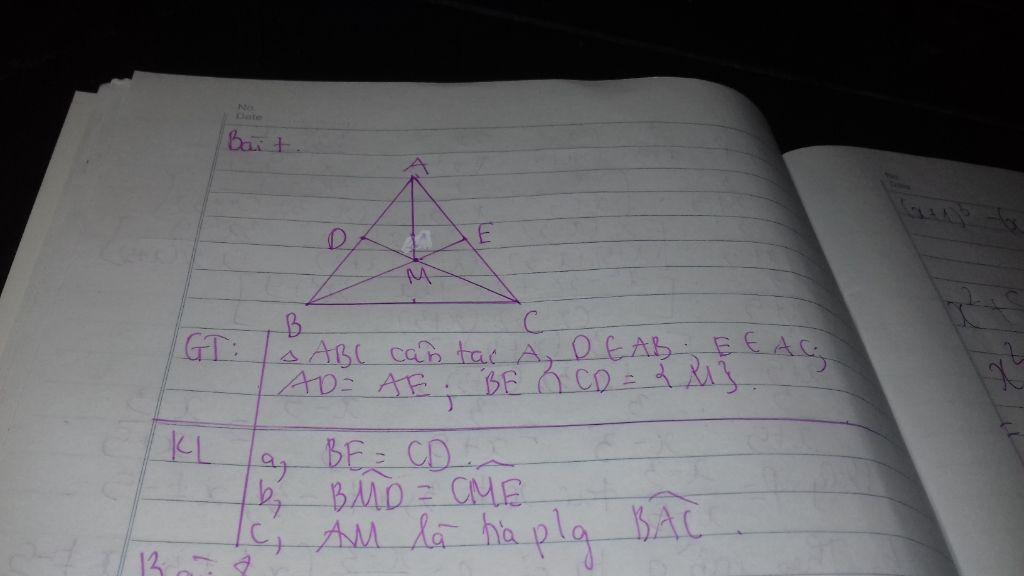 No.
Date
Bài 7.
A
D
E
M
B
C
GT:
△ ABC cân tại A, D ∈ AB; E ∈ AC;
AD = AE; BE ∩ CD = {M}.
KL
a, BE = CD.
b, BMD = CME
c, AM là tia plg BAC.
Bài 8
No.
Date